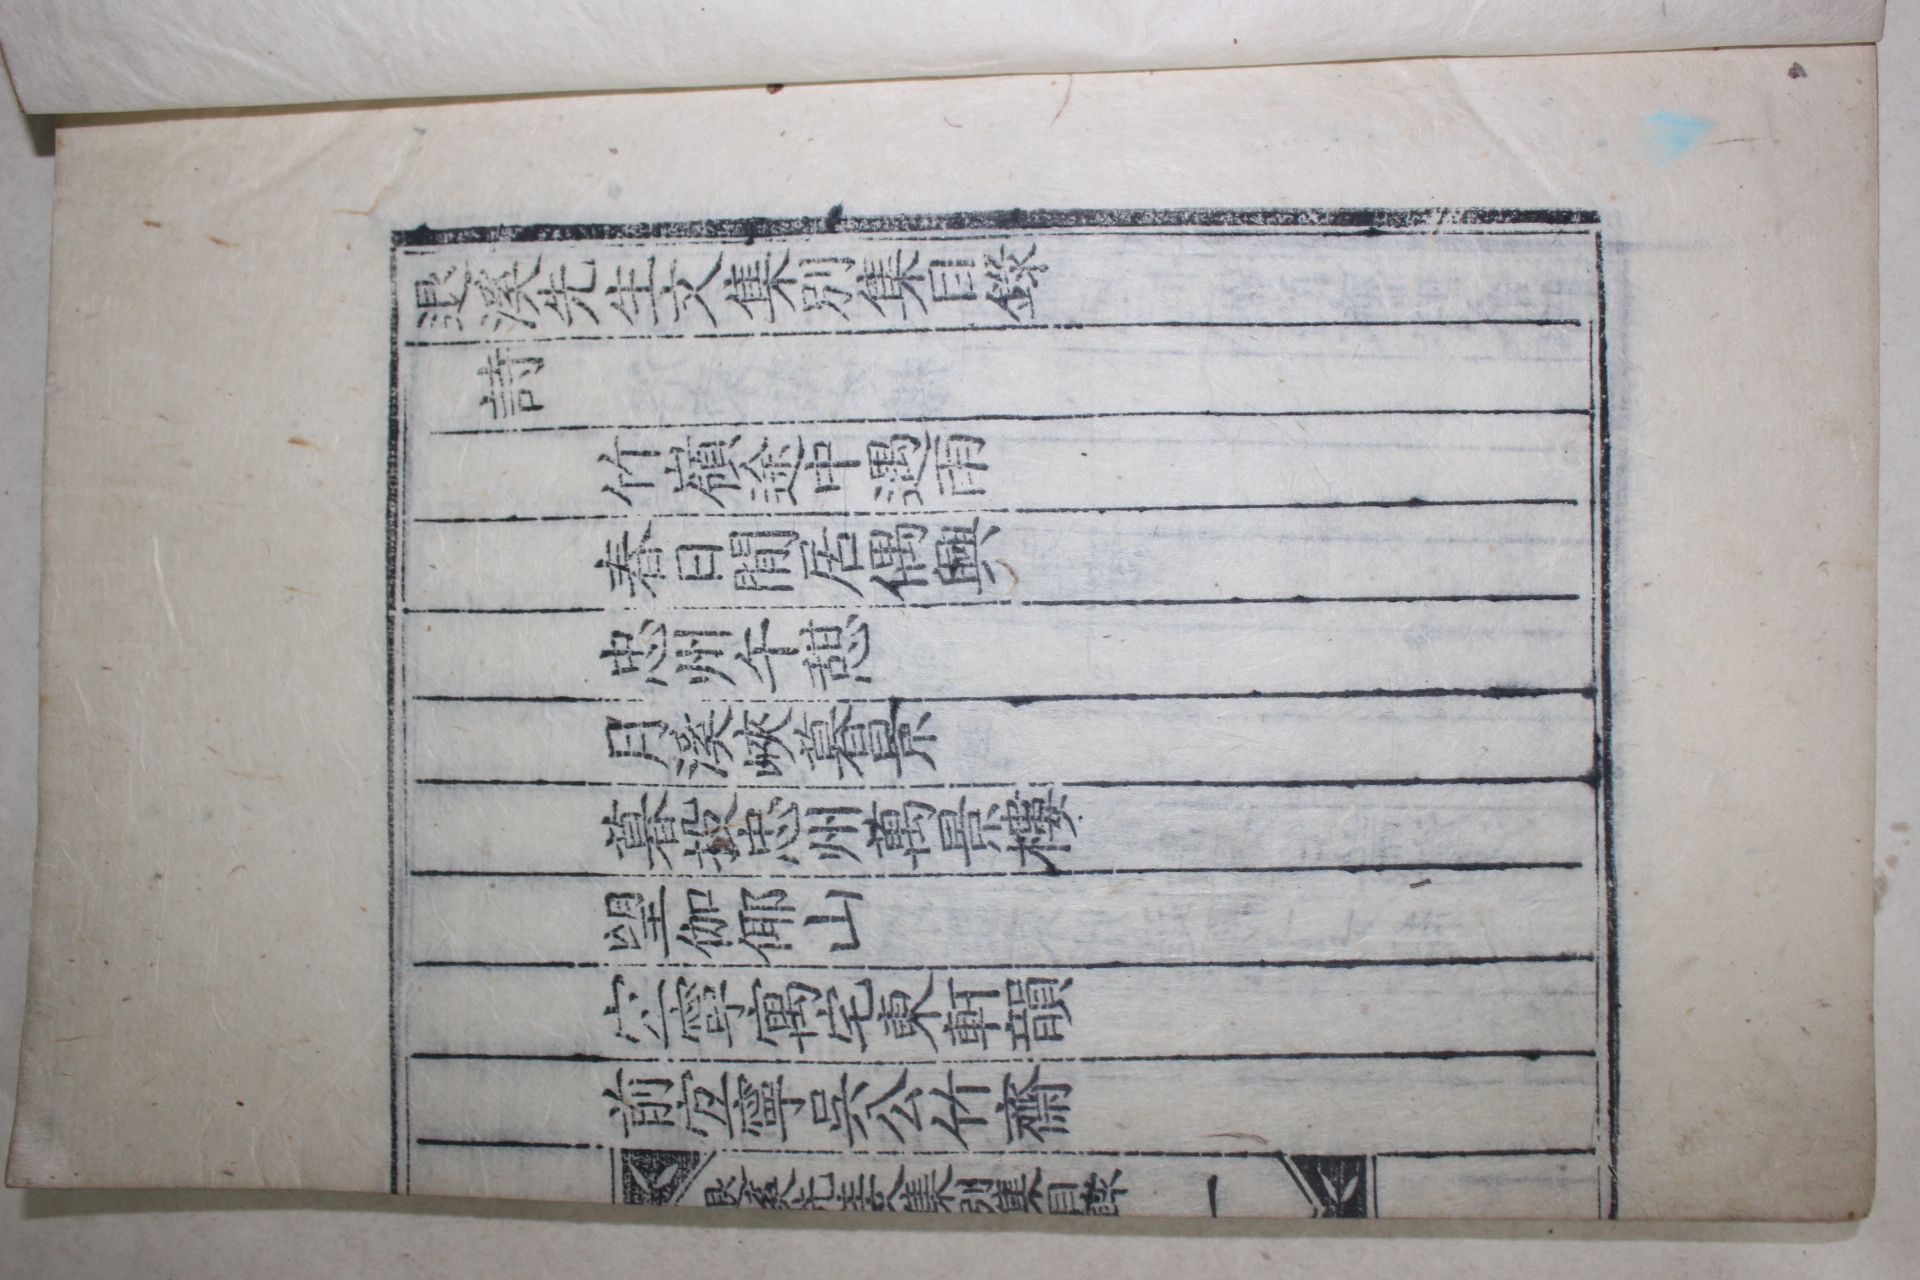 退溪先生文集別集目錄
詩
竹嶺途中遇雨
春日閒居偶興
忠州午憇
月溪峽暮景
暮投忠州萬景樓
望伽倻山
宐寧寓宅東軒韻
前宐寧吳公竹齋
退溪先生文集別集目錄 一